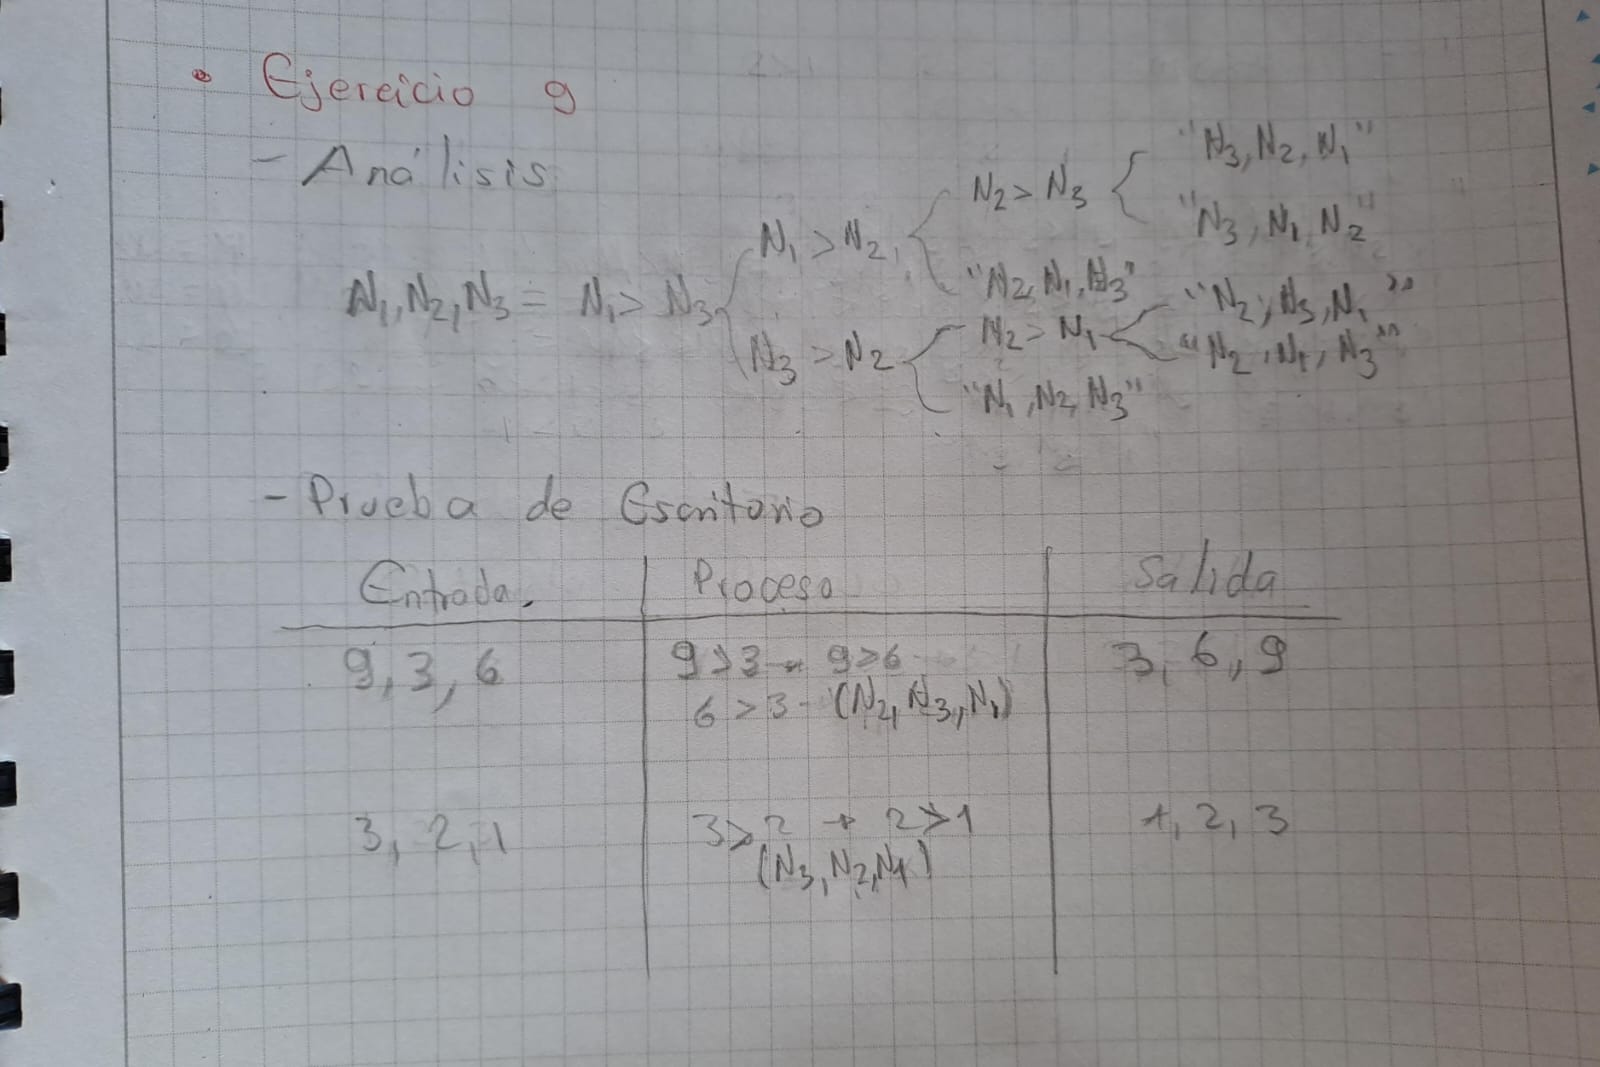 • Ejercicio 9
- Análisis
N1, N2, N3 = N1 > N3
N1 > N2
N2 > N3
"N3, N2, N1"
"N3, N1, N2"
"N2, N1, N3"
N3 > N2
N2 > N1
"N2, N3, N1"
"N2, N1, N3"
"N1, N2, N3"
- Prueba de Escritorio
Entrada. Proceso Salida
9, 3, 6 9>3 - 9>6 3, 6, 9
6 > 3 - (N2, N3, N1)
3, 2, 1 3>2 → 2>1 1, 2, 3
(N3, N2, N1)